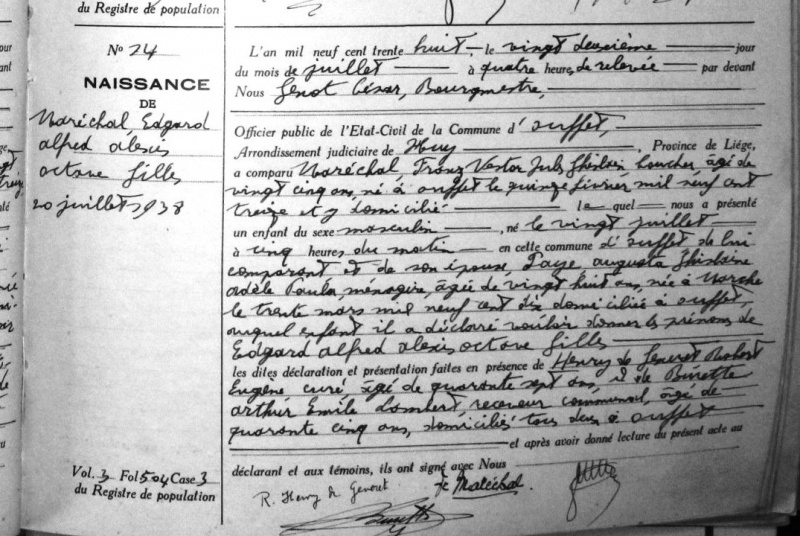 du Registre de population
No 24
NAISSANCE
DE
Maréchal Edgard
alfred alexis
octave gilles
20 juillet 1938
Vol. 3 Fol 504 Case 3
du Registre de population
L'an mil neuf cent trente huit, le vingt deuxième jour
du mois de juillet à quatre heures de relevée par devant
Nous Genot César, Bourgmestre,
Officier public de l'Etat-Civil de la Commune d' ouffet,
Arrondissement judiciaire de Huy, Province de Liége,
a comparu Maréchal, Franz Jules Ghislain boucher, âgé de
vingt cinq ans, né à ouffet le quinze février mil neuf cent
treize et y domicilié le quel nous a présenté
un enfant du sexe masculin, né le vingt juillet
à cinq heures du matin en cette commune d'ouffet de lui
comparant et de son épouse, Paye augusta Ghislaine
adèle Paula, ménagère, âgée de vingt huit ans, née à Marche
le trente mars mil neuf cent dix domiciliée à ouffet,
auquel enfant il a déclaré vouloir donner les prénoms de
Edgard alfred alexis octave gilles
les dites déclaration et présentation faites en présence de Henry de Robert
Eugène curé âgé de quarante sept ans, et de Binette
arthur Emile Lambert, receveur communal, âgé de
quarante cinq ans, domiciliés tous deux à ouffet
et après avoir donné lecture du présent acte au
déclarant et aux témoins, ils ont signé avec Nous
R. Henry de Maréchal